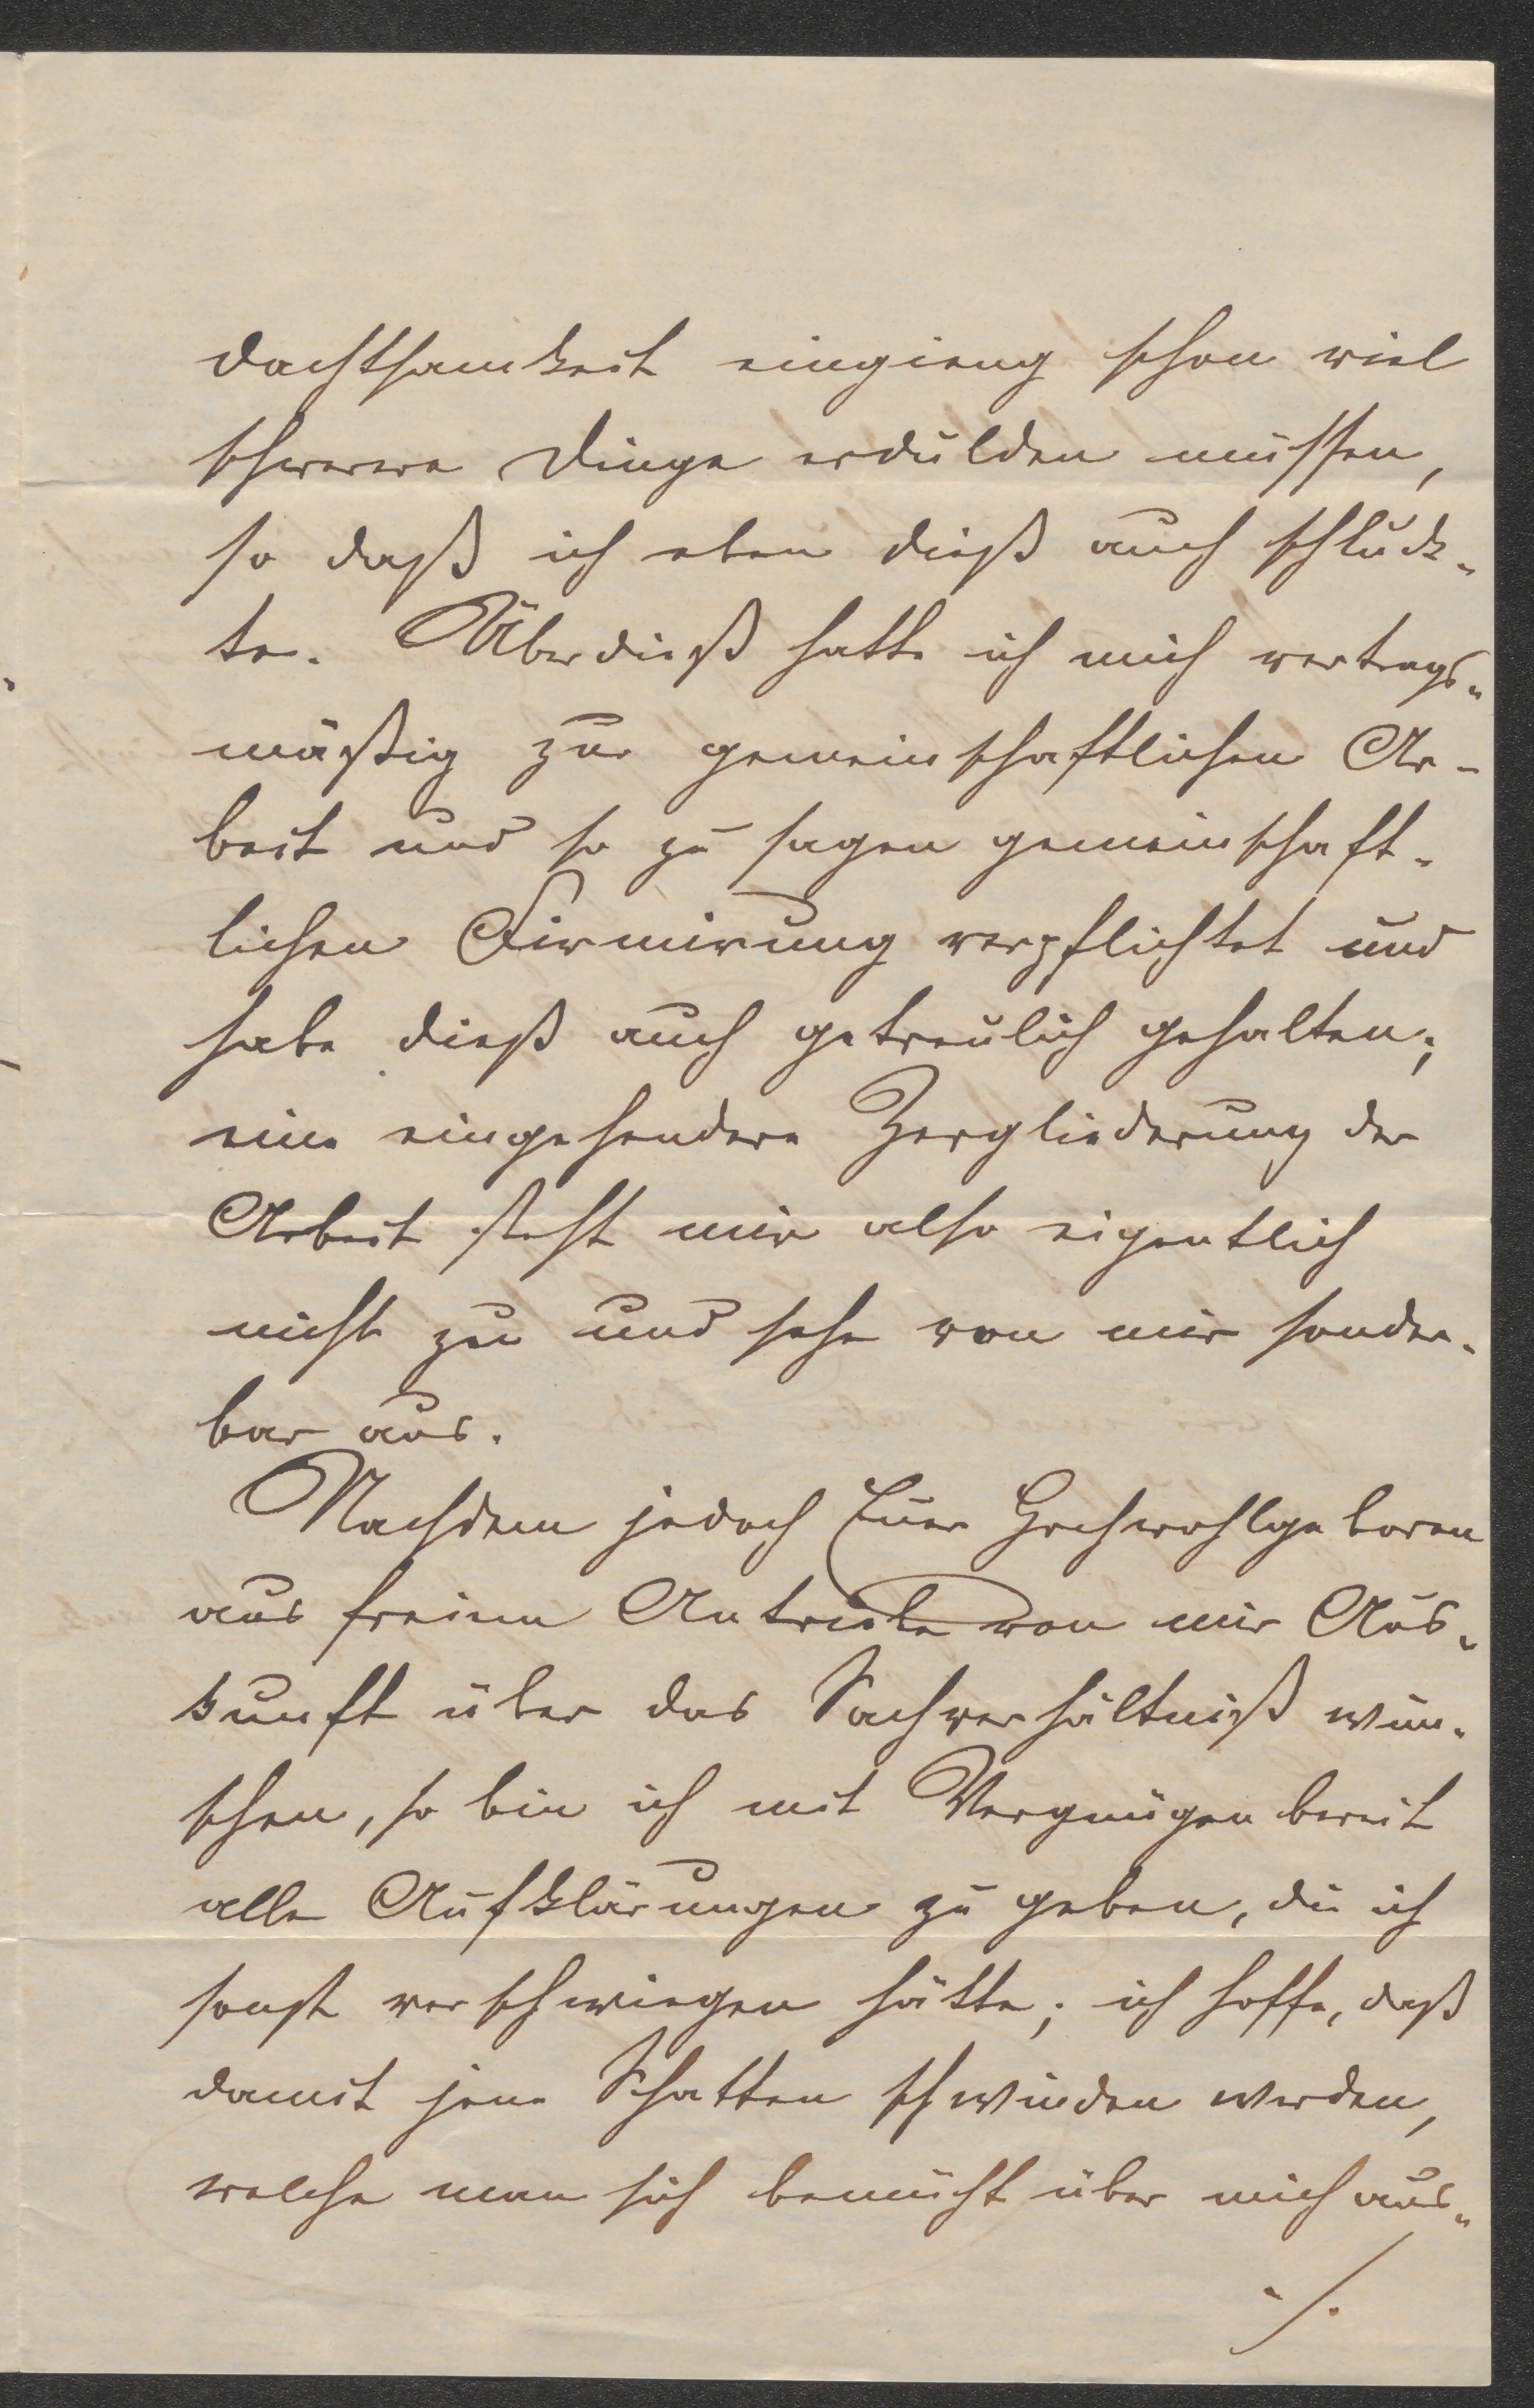 dachtsamkeit eingieng schon viel
schwerere Dinge erdulden müssen,
so daß ich eben dieß auch schluck-
te. Überdieß hatte ich mich vertrags-
mäßig zur gemeinschaftlichen Ar-
beit und so zu sagen gemeinschaft-
lichen Firmirung verpflichtet und
habe dieß auch getreulich gehalten;
eine eingehendere Zergliederung der
Arbeit steht mir also eigentlich
nicht zu und sehe von mir sonder-
bar aus.
Nachdem jedoch Euer Hochwohlgeboren
aus freiem Antriebe von mir Aus-
kunft über das Sachverhältniß wün-
schen, so bin ich mit Vergnügen bereit
alle Aufklärungen zu geben, die ich
sonst verschwiegen hätte; ich hoffe, daß
damit jene Schatten schwinden werden,
welche man sich bemüht über mich aus-
./.